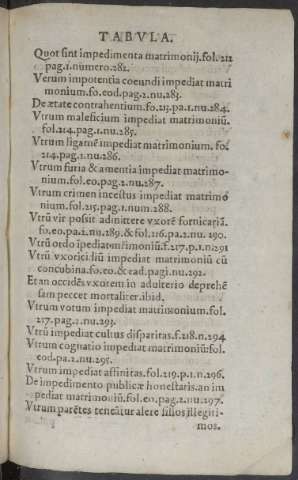 TABVLA.
Quot sint impedimenta matrimonij.fol.212
pag.1.numero.282.
Verum impotentia coeundi impediat matri
monium.fo.eod.pag.2.nu.283.
De ætate contrahentium.fo.213.pa.1.nu.284.
Vtrum maleficium impediat matrimoniũ.
fol.214.pag.1.nu.285.
Vtrum ligamẽ impediat matrimonium. fo.
214.pag.1.nu.286.
Vtrum furia & amentia impediat matrimo-
nium.fol.eo.pag.2.nu.287.
Vtrum crimen incestus impediat matrimo
nium.fol.215.pag.1.num.288.
Vtrũ vir possit admittere vxorẽ fornicariã.
fo.eo.pa.2.nu.289.& fol.216.pa.2.nu. 290.
Vtrũ ordo ĩpediat mr̃imoniũ.f.217.p.1.n.291
Vtrũ vxoricidiũ impediat matrimoniũ cũ
concubina.fo.eo.& ead.pagi.nu.292.
Et an occidẽs vxorem in adulterio deprehẽ
sam peccet mortaliter.ibid.
Vtrum votum impediat matrimonium.fol.
217.pag.2.nu.293.
Vtrũ impediat cultus disparitas.f.218.n.294
Vtrum cognatio impediat matrimoniũ:fol.
eod.pa.2.nu.295.
Vtrum impediat affinitas.fol.219.p.1.n.296.
De impedimento publicæ honestatis.an im
pediat matrimoniũ.fol.eo.pag.2.nu.297.
Vtrum parẽtes teneãtur alere filios illegiti-
mos.